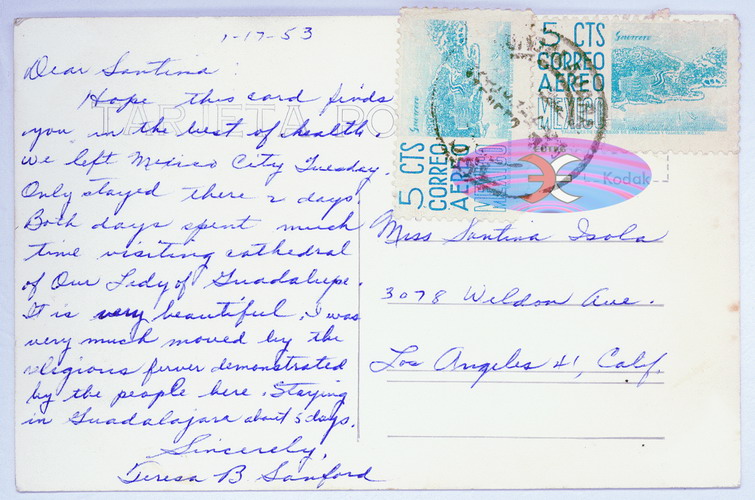 1-17-53
Dear Santina:
Hope this card finds
you in the best of health.
We left Mexico City Tuesday.
Only stayed there 2 days.
Both days spent much
time visiting cathedral
of Our Lady of Guadalupe.
It is very beautiful, I was
very much moved by the
religious ferver demonstrated
by the people here. Staying
in Guadalajara about 5 days.
Sincerely,
Teresa B Sanford
TARJETA PO
5 CTS
CORREO
AEREO
MEXICO
Guerrero
5 CTS
CORREO
AEREO
MEXICO
Guerrero
Kodak
Miss Santina Isola
3078 Weldon Ave.
Los Angeles 41, Calif.